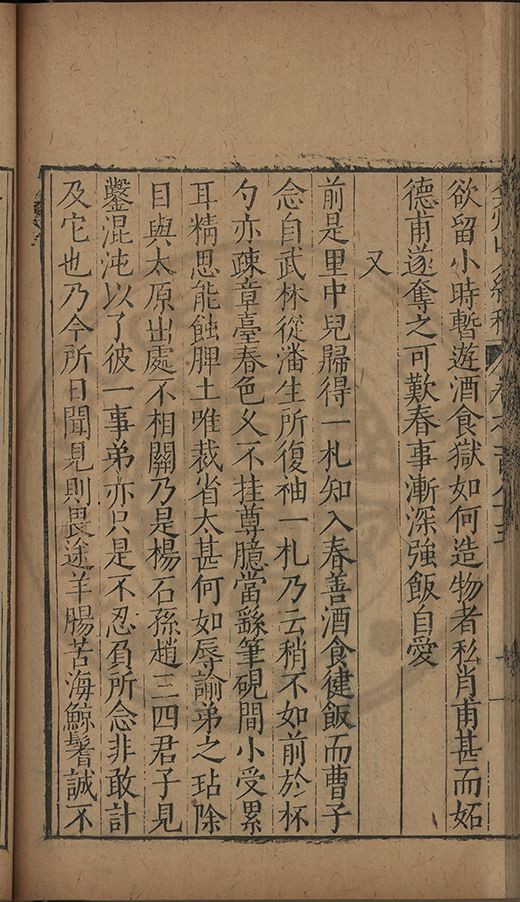 欲留小時暫遊酒食獄如何造物者私肖甫甚而妬
德甫遂奪之可歎春事漸深強飯自愛
又
前是里中兒歸得一札知入春善酒食健飯而曹子
念自武林從潘生所復袖一札乃云稍不如前於杯
勺亦疎章臺春色又不挂尊臆當繇筆硯間小受累
耳精思能蝕脾土唯裁省太甚何如辱諭弟之玷除
目與太原出處不相關乃是楊石孫趙三四君子見
鑿混沌以了彼一事弟亦只是不忍負所念非敢計
及它也乃今所日聞見則畏途羊腸苦海鯨鬐誠不